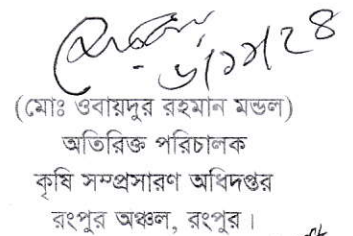 ৬/১১/২৪
(মোঃ ওবায়দুর রহমান মন্ডল)
অতিরিক্ত পরিচালক
কৃষি সম্প্রসারণ অধিদপ্তর
রংপুর অঞ্চল, রংপুর।